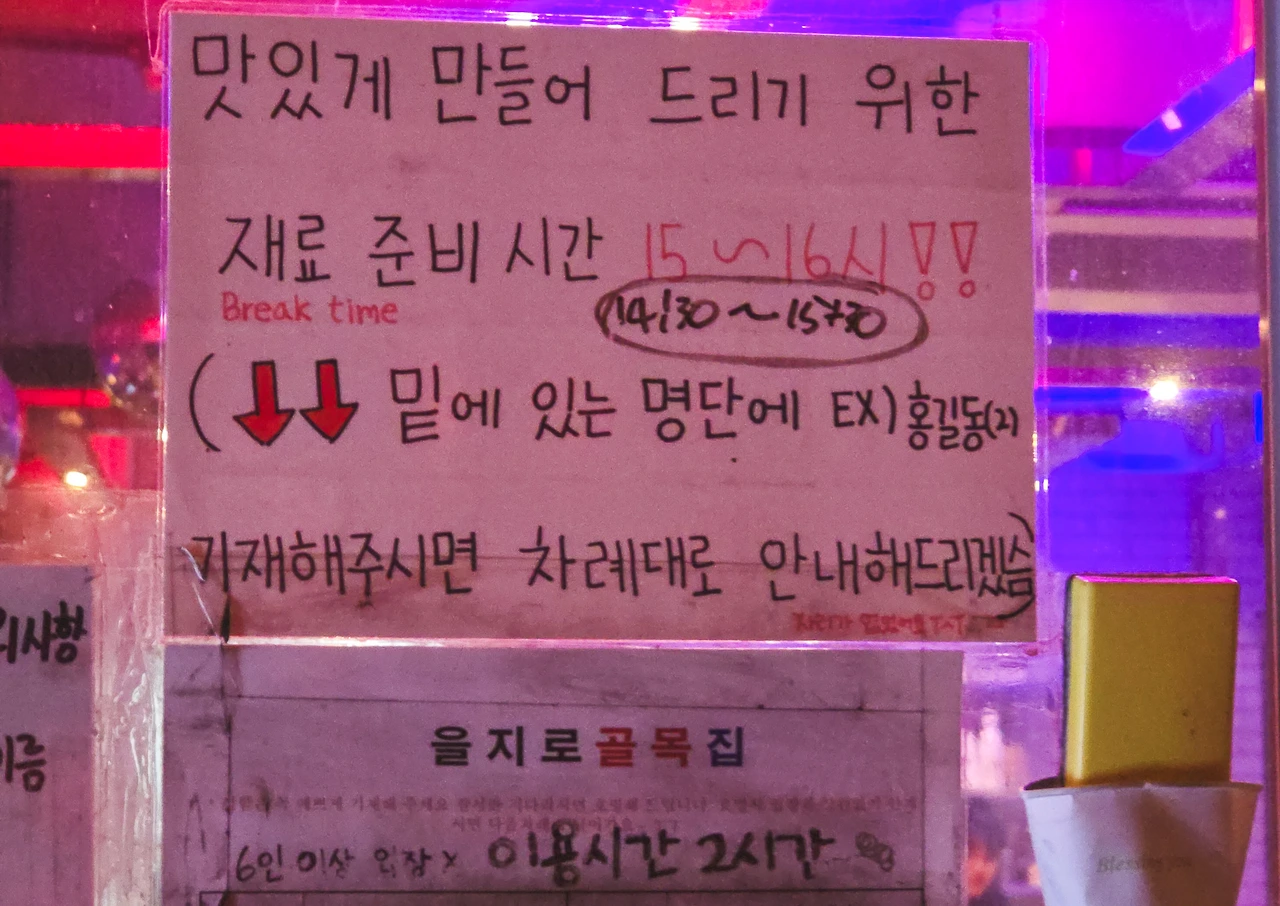 맛있게 만들어 드리기 위한
재료 준비 시간 15~16시!!
Break time
14:30 ~ 15:30
(↓↓ 밑에 있는 명단에 EX) 홍길동(2)
기재해주시면 차례대로 안내해드리겠슴)
자리가
의사항
이름
을지로골목집
기재해 주세요
6인 이상 입장 x 이용시간 2시간
Blessing